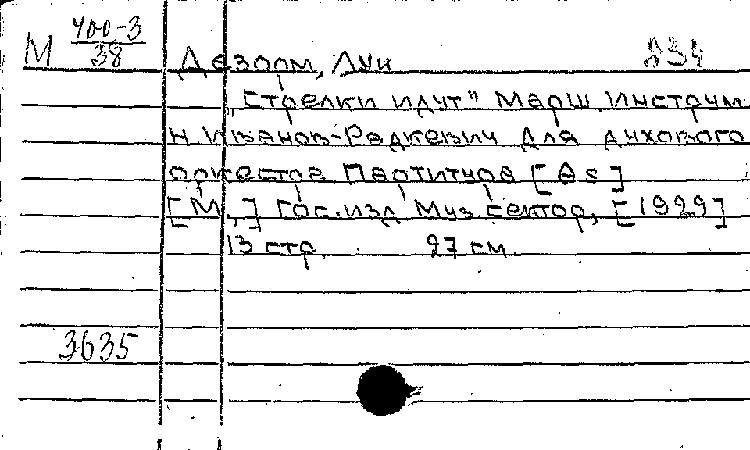 М 400-3/38 Дезорм, Луи 234
„Стрелки идут" Марш. Инструм
Н. Иванов-Радкевич Для духового
оркестра Партитура [As]
[М.,] Гос. изд. Муз. сектор, [1929]
13 стр. 27 см.
3635